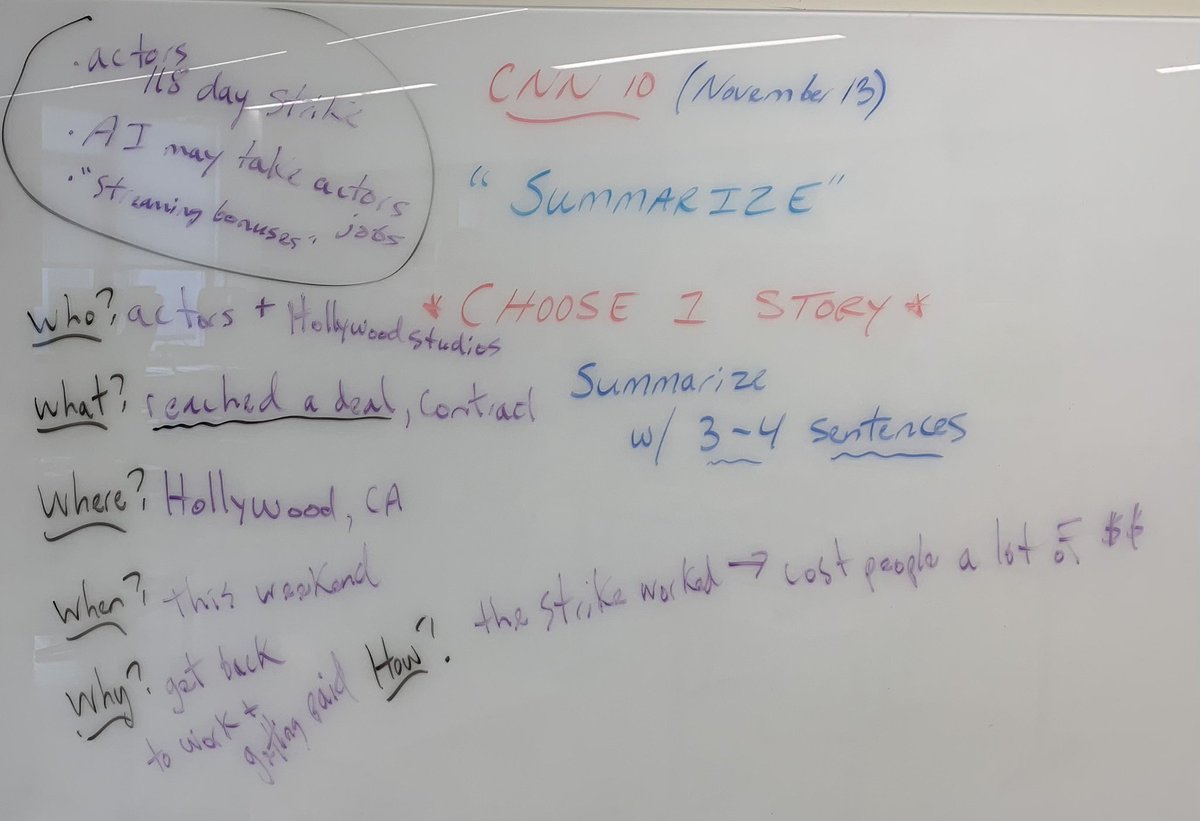 · actors
118 day strike
· AI may take actors
jobs
· "streaming bonuses"
CNN 10 (November 13)
"SUMMARIZE"
* CHOOSE 1 STORY *
Summarize
w/ 3-4 sentences
Who? actors + Hollywood studios
What? reached a deal, contract
Where? Hollywood, CA
When? this weekend
Why? get back
to work +
getting paid
How? the strike worked → cost people a lot of $$